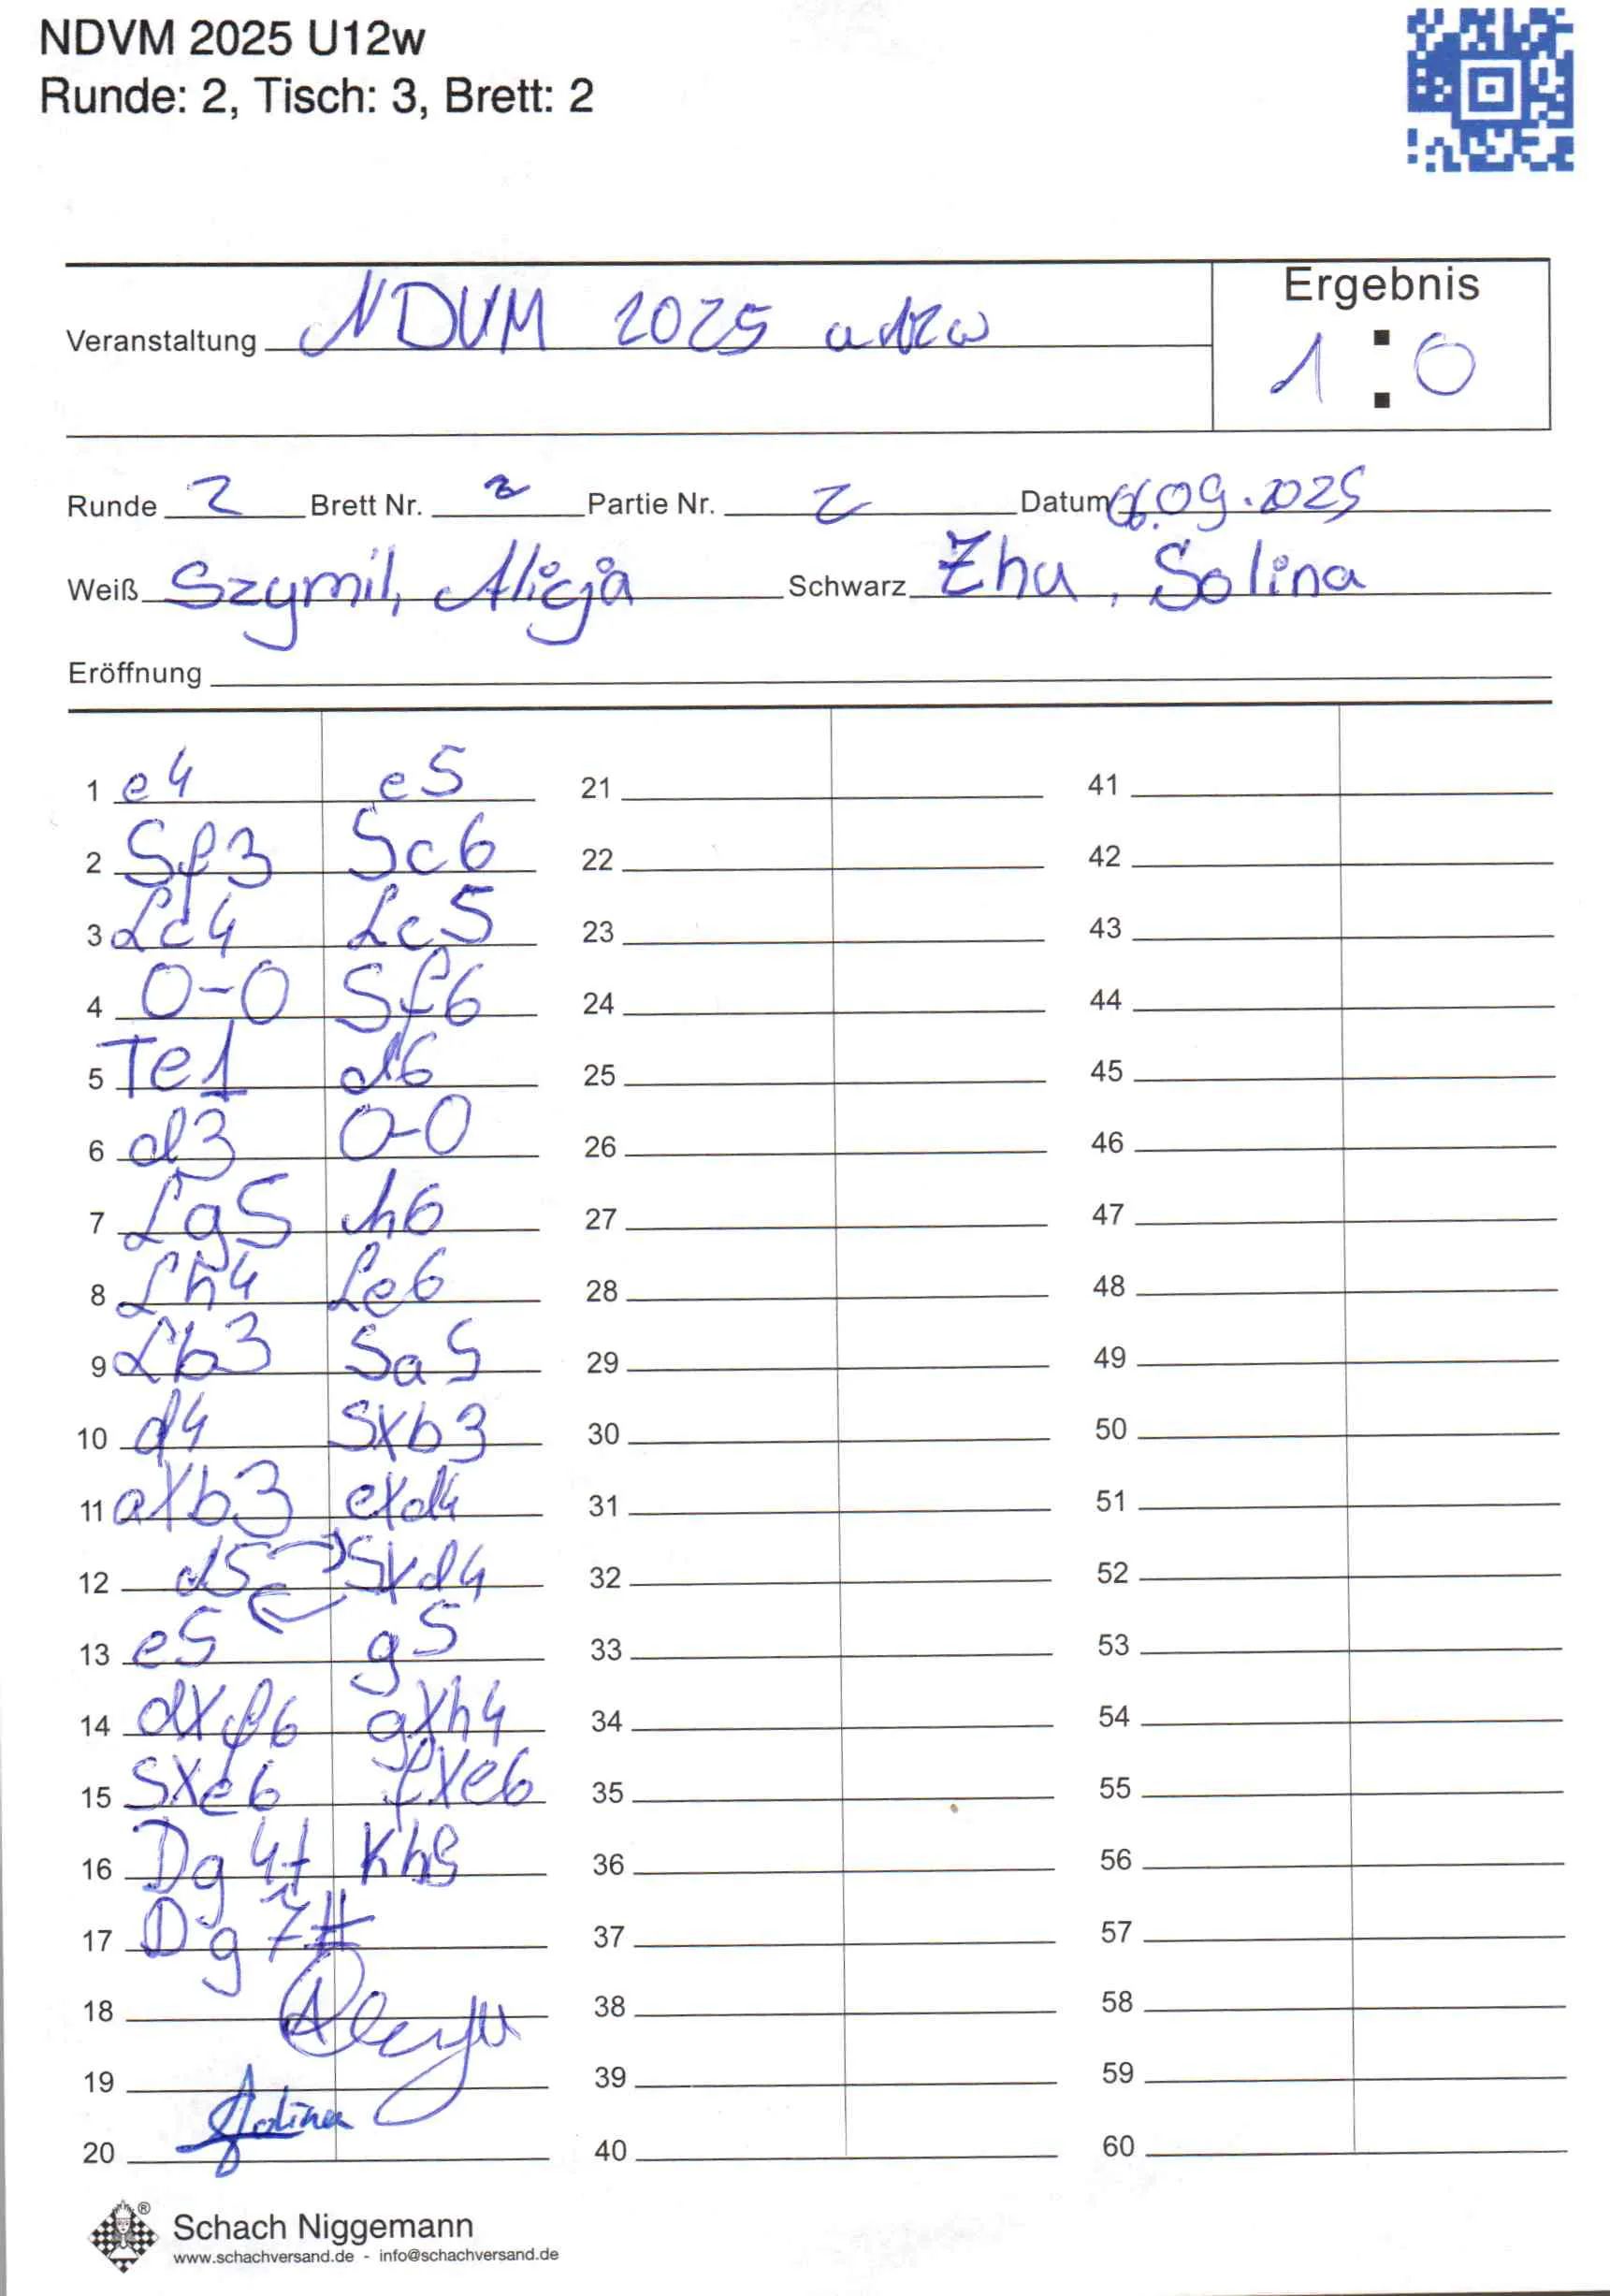 NDVM 2025 U12w
Runde: 2, Tisch: 3, Brett: 2
Ergebnis
Veranstaltung NDVM 2025 u12w
1 : 0
Runde 2 Brett Nr. 2 Partie Nr. 2 Datum 06.09.2025
Weiß Szymil, Alicja Schwarz Zhu, Solina
Eröffnung
1 e4 e5 21 41
2 Sf3 Sc6 22 42
3 Lc4 Lc5 23 43
4 0-0 Sf6 24 44
5 Te1 d6 25 45
6 d3 0-0 26 46
7 Lg5 h6 27 47
8 Lh4 Le6 28 48
9 Lb3 Sa5 29 49
10 d4 Sxb3 30 50
11 axb3 exd4 31 51
12 d5 Sxd4 32 52
13 e5 g5 33 53
14 dxf6 gxh4 34 54
15 Sxe6 fxe6 35 55
16 Dg4+ Kh8 36 56
17 Dg7# 37 57
18 Alicja 38 58
19 39 59
Solina
20 40 60
Schach Niggemann
www.schachversand.de - info@schachversand.de